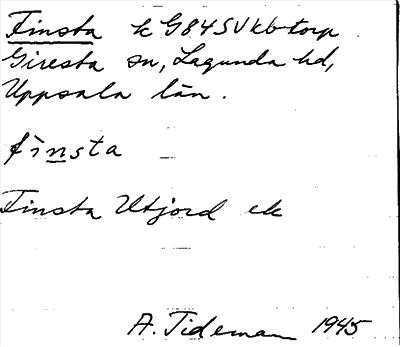 Finsta k G84SV kb-torp
Giresta sn, Lagunda hd,
Uppsala län.
finsta
Finsta Utjord ek
A. Tideman 1945